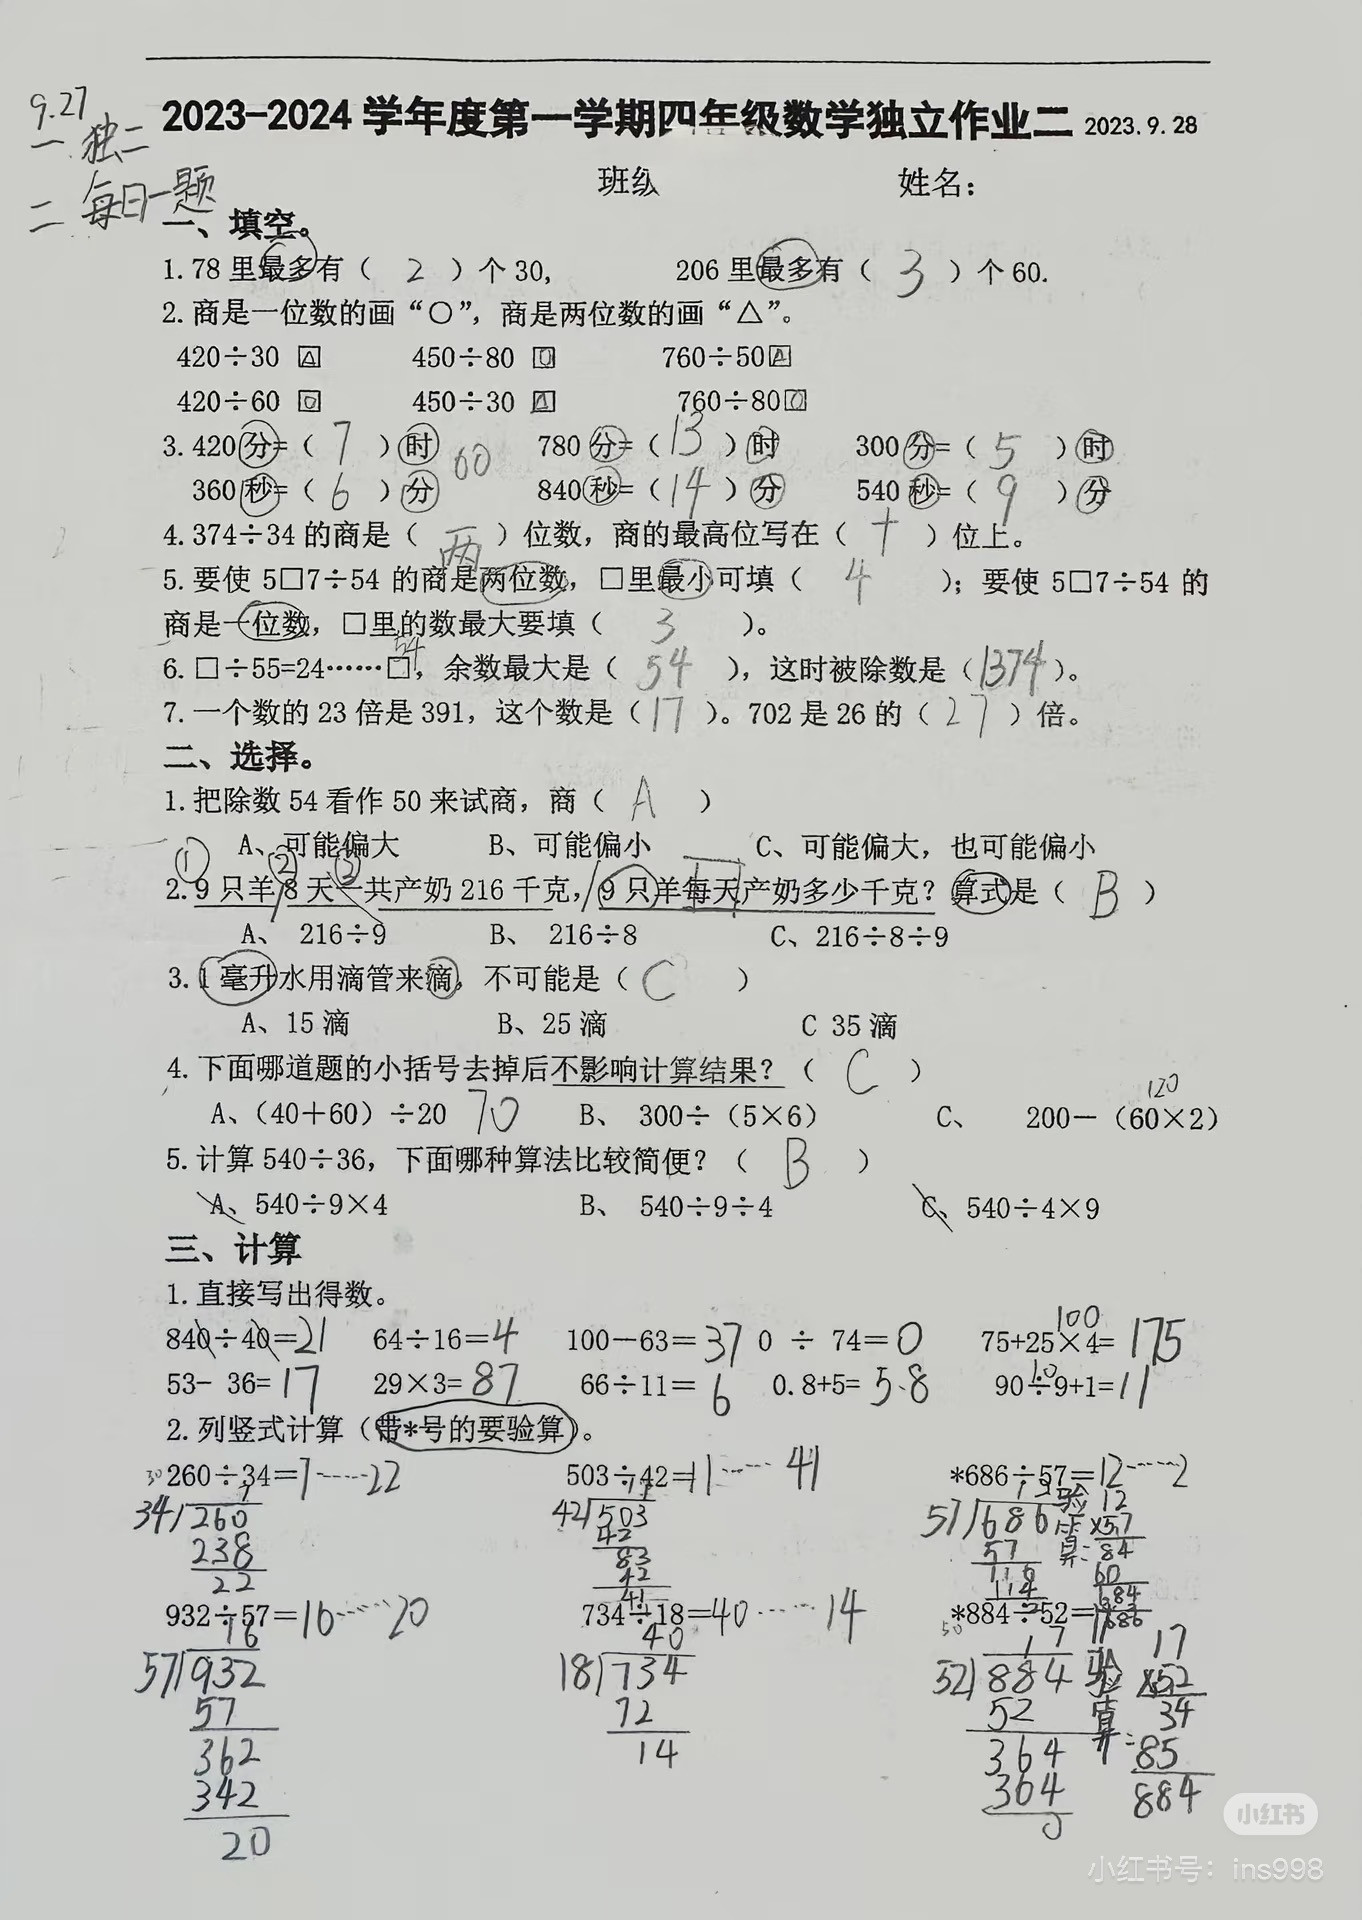 9.27
一.独二
二 每日一题
2023-2024 学年度第一学期四年级数学独立作业二 2023.9.28
班级 姓名：
一、填空。
1.78 里最多有（ 2 ）个 30, 206 里最多有（ 3 ）个 60.
2.商是一位数的画“○”，商是两位数的画“△”。
420÷30 △ 450÷80 ○ 760÷50 △
420÷60 ○ 450÷30 △ 760÷80 ○
3.420 分=（ 7 ）时 60 780 分=（ 13 ）时 300 分=（ 5 ）时
360 秒=（ 6 ）分 840 秒=（ 14 ）分 540 秒=（ 9 ）分
4.374÷34 的商是（ 两 ）位数，商的最高位写在（ 十 ）位上。
5.要使 5□7÷54 的商是两位数，□里最小可填（ 4 ）；要使 5□7÷54 的
商是一位数，□里的数最大要填（ 3 ）。
54
6.□÷55=24……□，余数最大是（ 54 ），这时被除数是（1374）。
7.一个数的 23 倍是 391，这个数是（17）。702 是 26 的（ 27 ）倍。
二、选择。
1.把除数 54 看作 50 来试商，商（ A ）
A、可能偏大 B、可能偏小 C、可能偏大，也可能偏小
① ② ③
2.9 只羊 8 天一共产奶 216 千克，9 只羊每天产奶多少千克？算式是（ B ）
A、 216÷9 B、 216÷8 C、216÷8÷9
3.1 毫升水用滴管来滴，不可能是（ C ）
A、15 滴 B、25 滴 C 35 滴
4.下面哪道题的小括号去掉后不影响计算结果？（ C ）
120
A、（40＋60）÷20 70 B、 300÷（5×6） C、 200－（60×2）
5.计算 540÷36，下面哪种算法比较简便？（ B ）
A、540÷9×4 B、 540÷9÷4 C、540÷4×9
三、计算
1.直接写出得数。
100
840÷40=21 64÷16=4 100－63=37 0 ÷ 74=0 75+25×4=175
10
53- 36=17 29×3=87 66÷11=6 0.8+5=5.8 90÷9+1=11
2.列竖式计算（带*号的要验算）。
30 260÷34=7……22 503÷42=11……41 *686÷57=12……2
7 11 12 验算： 12
34 260 42 503 57 686 ×57
238 42 57 84
22 83 116 60
42 114 684
41 2 686
932÷57=16……20 734÷18=40……14 *884÷52=17
16 40 50 17 验算： 17
57 932 18 734 52 884 ×52
57 72 52 34
362 14 364 85
342 364 884
20 0
小红书
小红书号：ins998